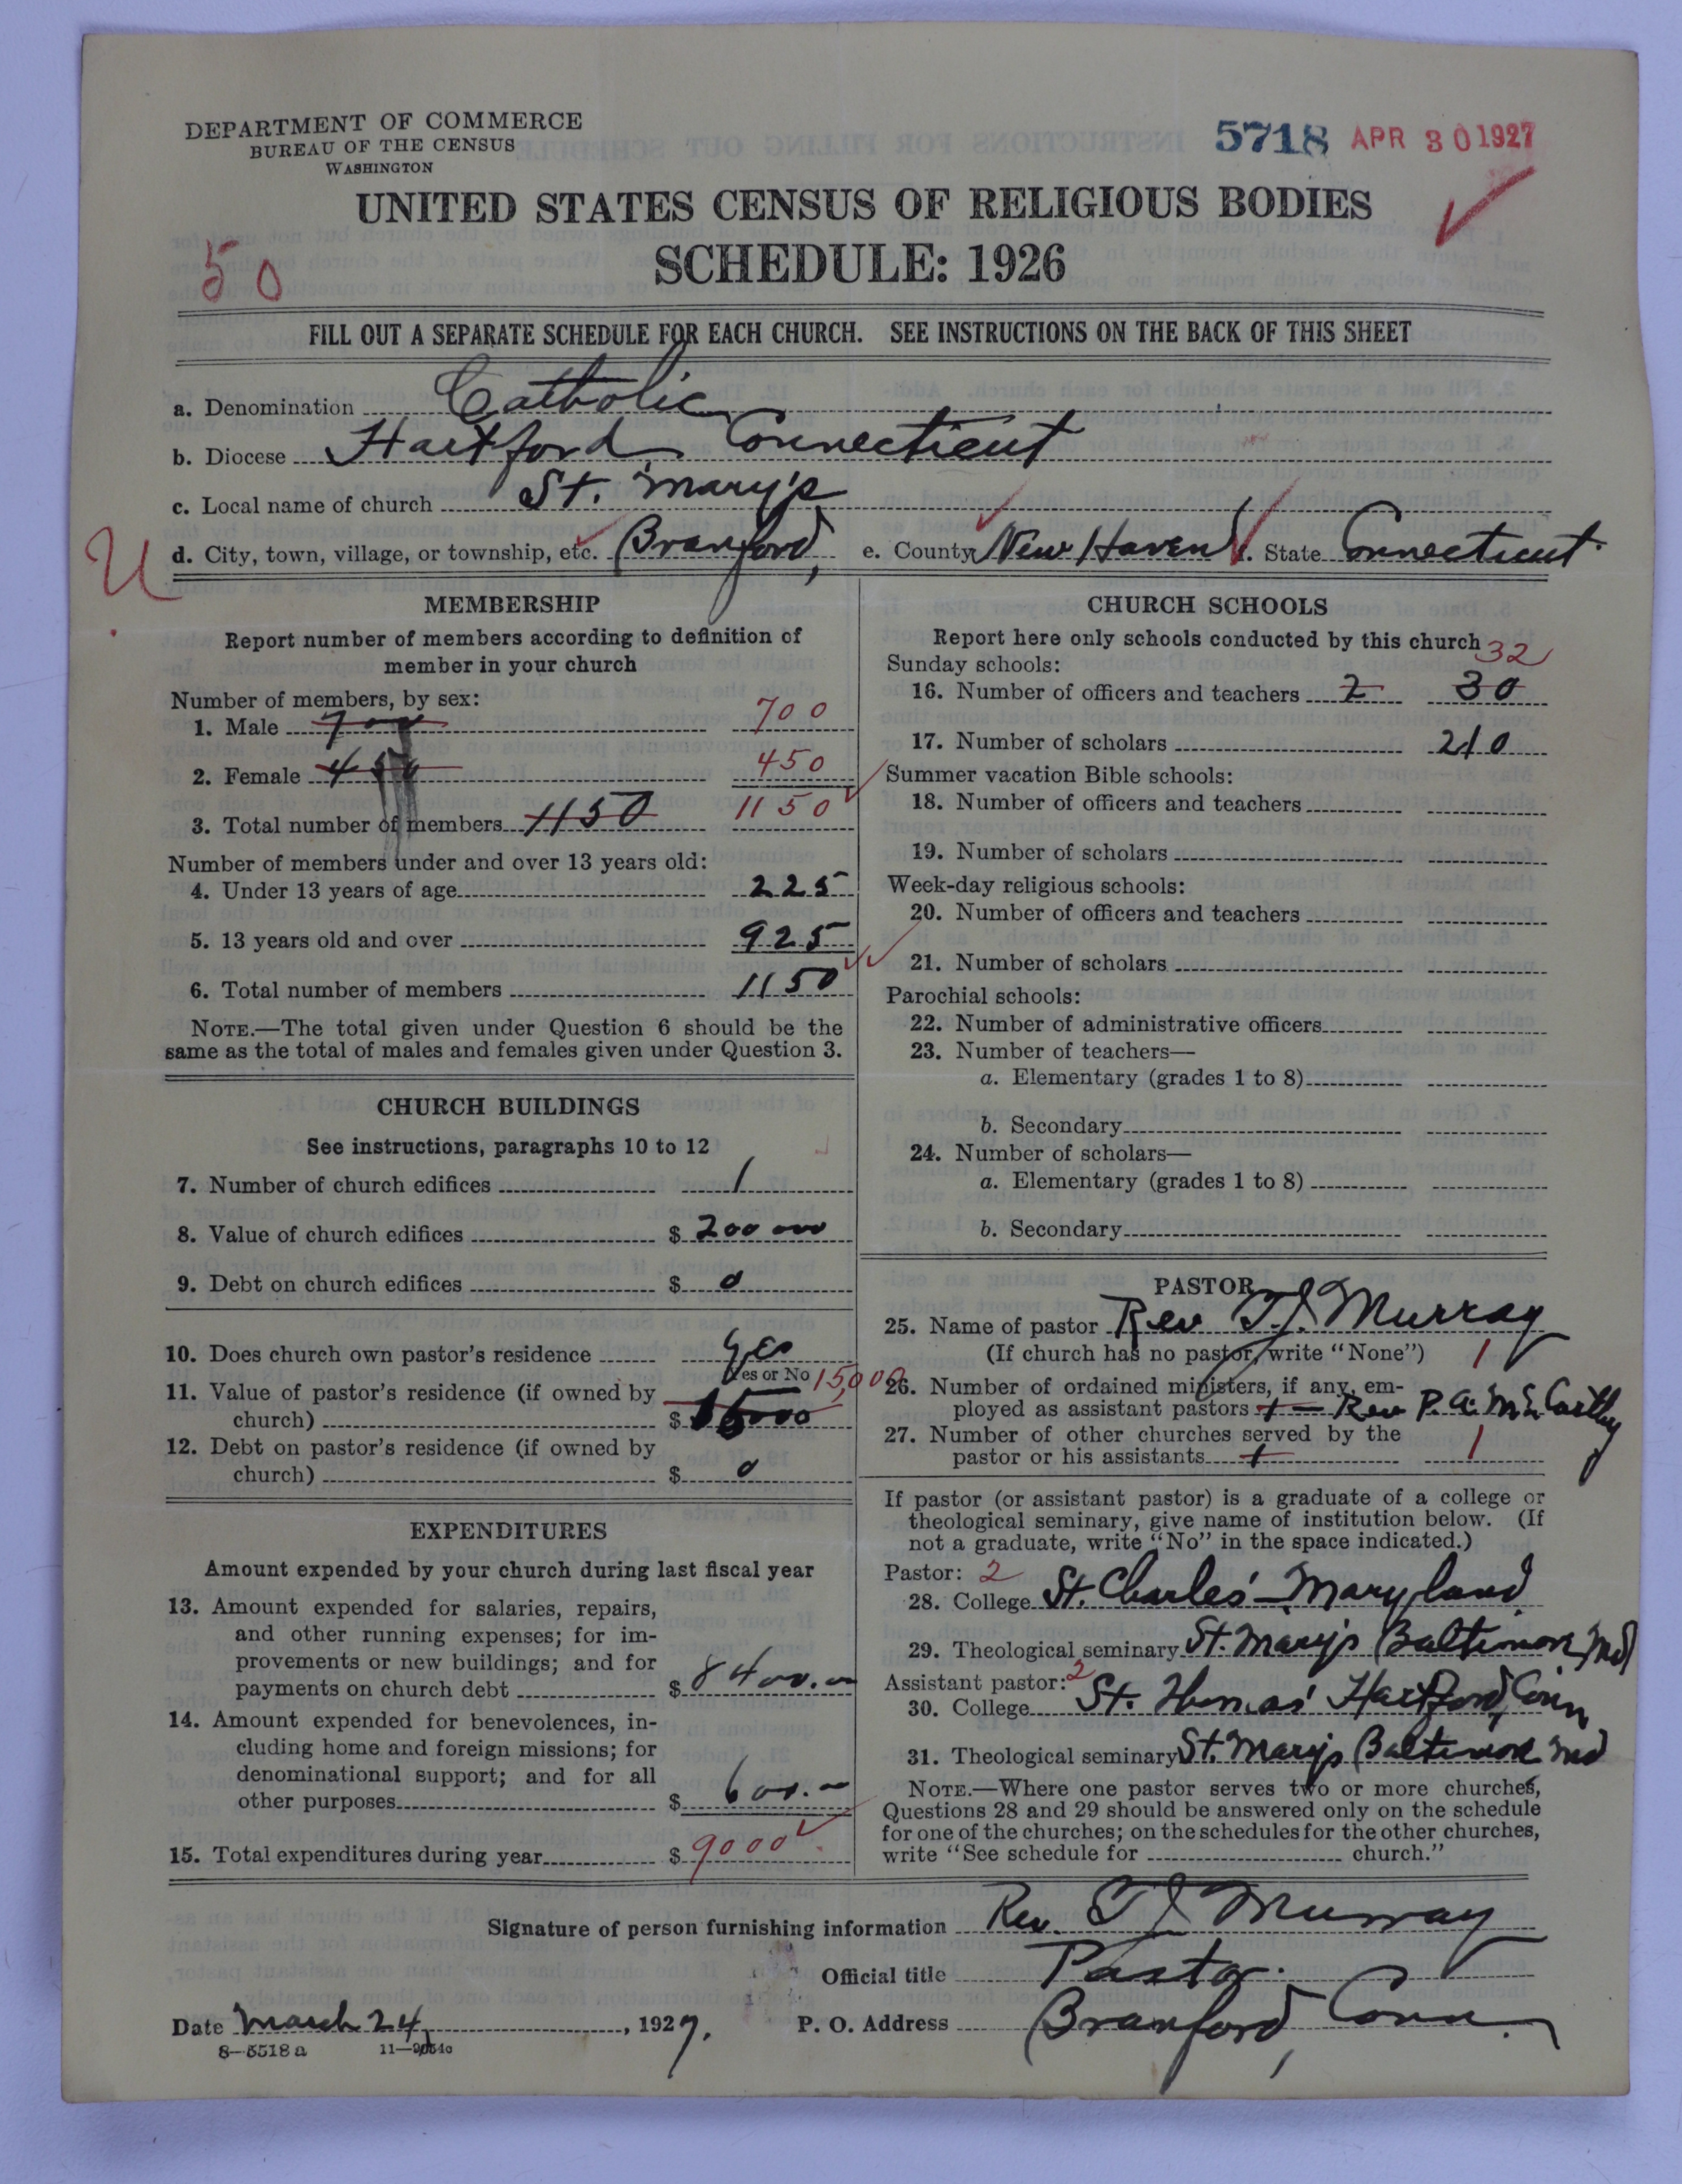 DEPARTMENT OF COMMERCE
BUREAU OF THE CENSUS
WASHINGTON
5718 APR 30 1927
UNITED STATES CENSUS OF RELIGIOUS BODIES
SCHEDULE: 1926
50
FILL OUT A SEPARATE SCHEDULE FOR EACH CHURCH. SEE INSTRUCTIONS ON THE BACK OF THIS SHEET
a. Denomination Catholic
b. Diocese Hartford, Connecticut
c. Local name of church St. Mary's
U
d. City, town, village, or township, etc. Branford, e. County New Haven f. State Connecticut.
MEMBERSHIP
Report number of members according to definition of
member in your church
Number of members, by sex:
1. Male 700 700
2. Female 450 450
3. Total number of members 1150 1150
Number of members under and over 13 years old:
4. Under 13 years of age 225
5. 13 years old and over 925
6. Total number of members 1150
NOTE.—The total given under Question 6 should be the
same as the total of males and females given under Question 3.
CHURCH BUILDINGS
See instructions, paragraphs 10 to 12
7. Number of church edifices 1
8. Value of church edifices $ 200 000
9. Debt on church edifices $ 0
10. Does church own pastor's residence Yes
Yes or No
11. Value of pastor's residence (if owned by 15,000
church) $ 15000
12. Debt on pastor's residence (if owned by
church) $ 0
EXPENDITURES
Amount expended by your church during last fiscal year
13. Amount expended for salaries, repairs,
and other running expenses; for im-
provements or new buildings; and for
payments on church debt $ 8400.00
14. Amount expended for benevolences, in-
cluding home and foreign missions; for
denominational support; and for all
other purposes $ 600.—
15. Total expenditures during year $ 9000
CHURCH SCHOOLS
Report here only schools conducted by this church
32
Sunday schools:
16. Number of officers and teachers 2 30
17. Number of scholars 210
Summer vacation Bible schools:
18. Number of officers and teachers
19. Number of scholars
Week-day religious schools:
20. Number of officers and teachers
21. Number of scholars
Parochial schools:
22. Number of administrative officers
23. Number of teachers—
a. Elementary (grades 1 to 8)
b. Secondary
24. Number of scholars—
a. Elementary (grades 1 to 8)
b. Secondary
PASTOR
25. Name of pastor Rev. T. J. Murray
(If church has no pastor, write "None") 1
26. Number of ordained ministers, if any, em-
ployed as assistant pastors 1 — Rev P. A. McCarthy
27. Number of other churches served by the
pastor or his assistants 1 1
If pastor (or assistant pastor) is a graduate of a college or
theological seminary, give name of institution below. (If
not a graduate, write "No" in the space indicated.)
Pastor: 2
28. College St. Charles' – Maryland
29. Theological seminary St. Mary's Baltimore Md
Assistant pastor: 2
30. College St. Thomas' Hartford, Conn
31. Theological seminary St. Mary's Baltimore Md
NOTE.—Where one pastor serves two or more churches,
Questions 28 and 29 should be answered only on the schedule
for one of the churches; on the schedules for the other churches,
write "See schedule for church."
Signature of person furnishing information Rev. T J Murray
Official title Pastor.
Date March 24, 1927. P. O. Address Branford, Conn.
8—5518 a